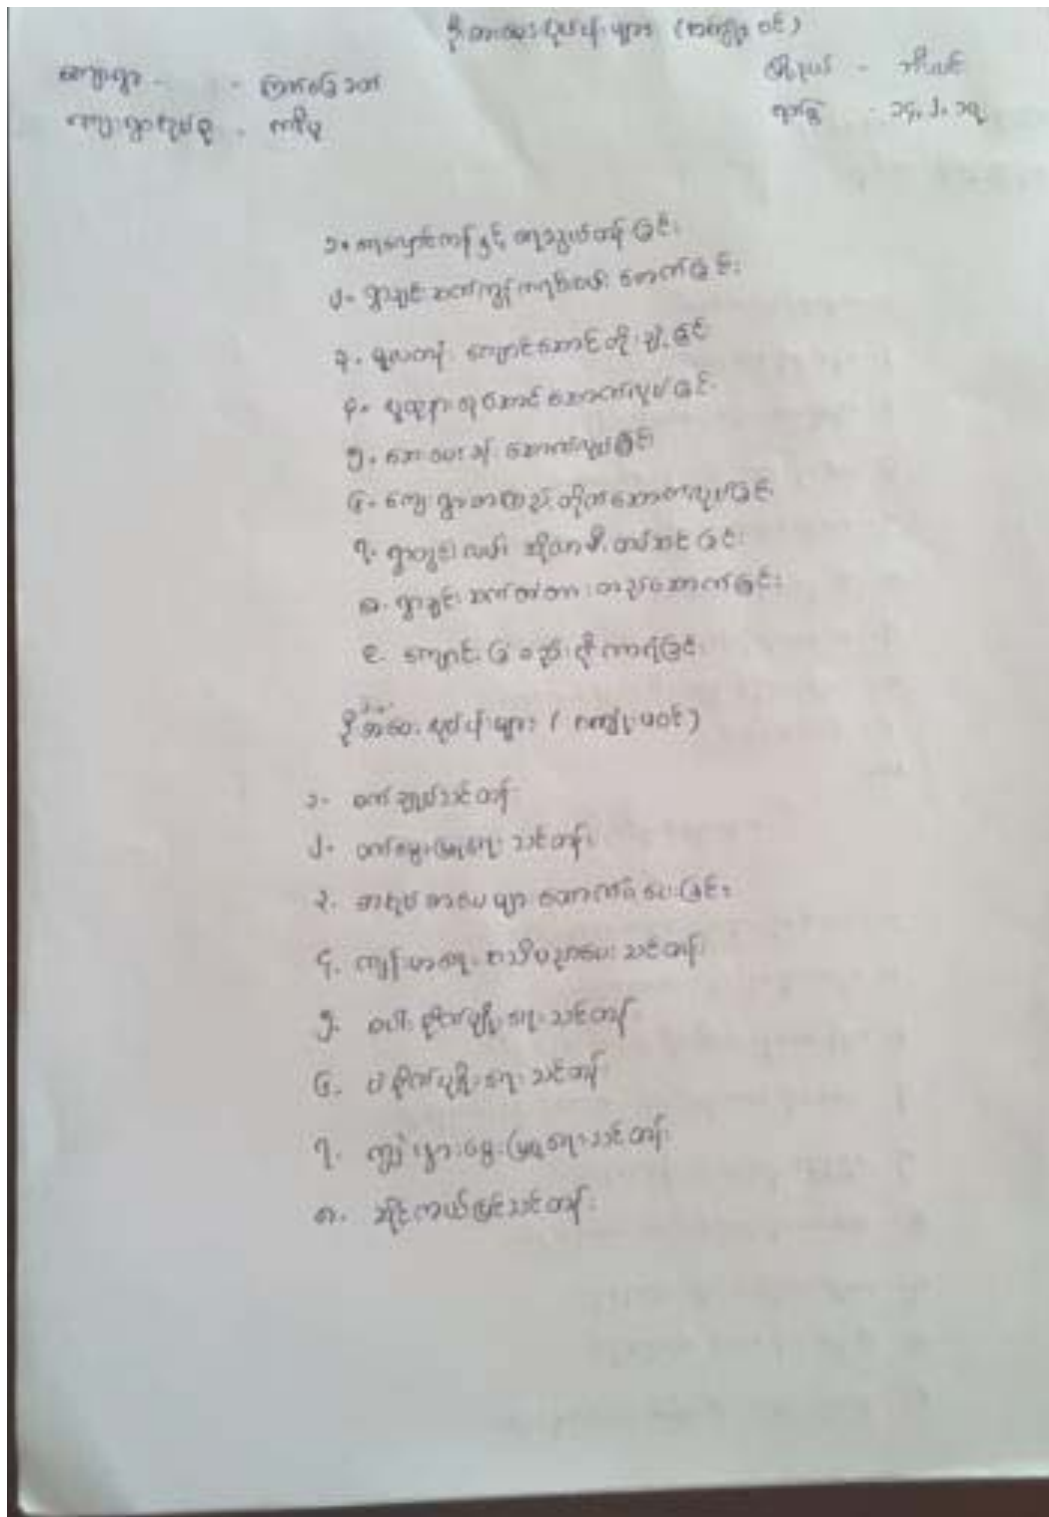 ဦးစားပေးလုပ်ငန်းများ (အကျုံးဝင်)
မြို့နယ် - ဘီလင်း
ကျေးရွာ -
ကျေးရွာအုပ်စု -
ရက်စွဲ - ၁၄.၂.၁၇
၁။ ရေလှောင်ကန်နှင့် ရေသွယ်တန်းခြင်း
၂။ ရွာချင်းဆက်ကွန်ကရစ်လမ်း ဖောက်ခြင်း
၃။ မူလတန်း ကျောင်းဆောင်တိုးချဲ့ခြင်း
၄။ မူထူနား ဆောင် ဆောက်လုပ်ခြင်း
၅။ ဆေးပေးခန်း ဆောက်လုပ်ခြင်း
၆။ ကျေးရွာစာကြည့်တိုက်ဆောက်လုပ်ခြင်း
၇။ ရွာတွင်းလမ်း ဆိုလာမီး တပ်ဆင်ခြင်း
၈။ ရွာချင်းဆက်တံတားတည်ဆောက်ခြင်း
၉။ ကျောင်းခြံစည်းရိုးကာရံခြင်း
ဦးစားပေးလုပ်ငန်းများ (အကျုံးမဝင်)
၁။ စက်ချုပ်သင်တန်း
၂။ ဝက်မွေးမြူရေး သင်တန်း
၃။ စာအုပ်စာပေများ ထောက်ပံ့ပေးခြင်း
၄။ ကျန်းမာရေး အသိပညာပေး သင်တန်း
၅။ စပါးစိုက်ပျိုးရေးသင်တန်း
၆။ ပဲစိုက်ပျိုးရေး သင်တန်း
၇။ ကျွဲနွားမွေးမြူရေးသင်တန်း
၈။ ဆိုင်ကယ်ပြင်သင်တန်း